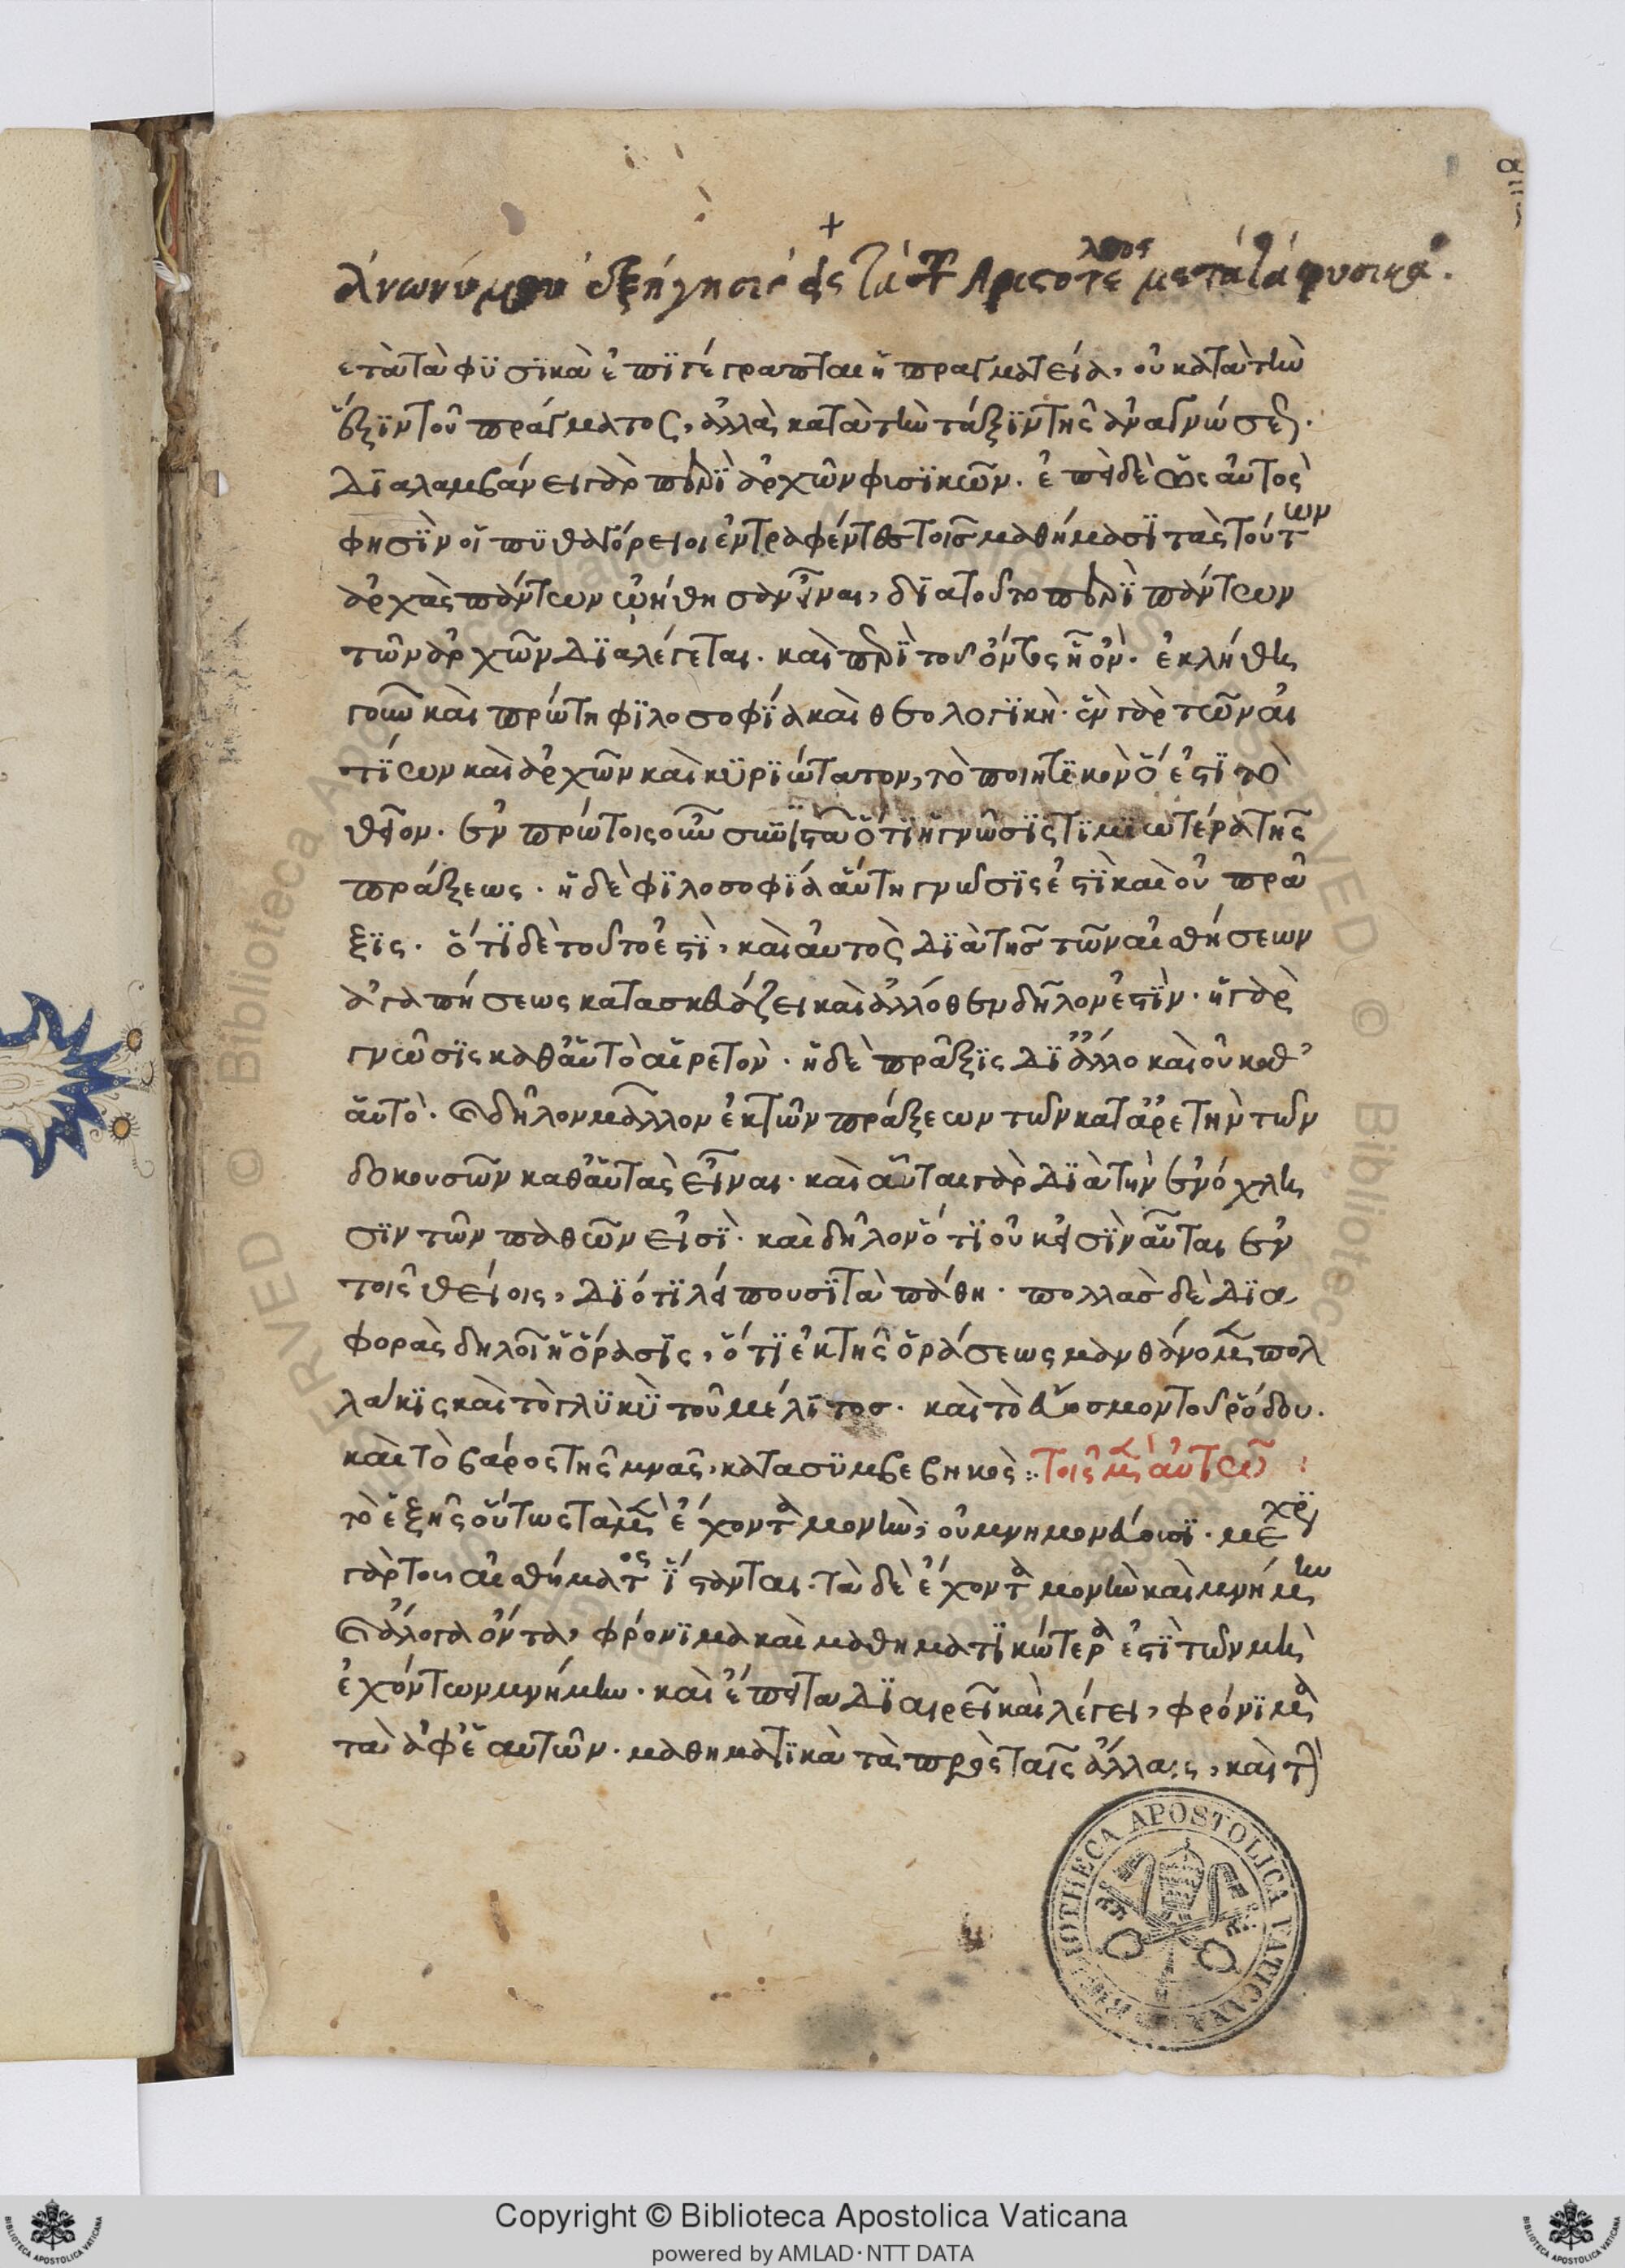 +
ἀνωνύμου ἐξήγησις εἰς τὰ τοῦ Ἀριστοτέλους μετὰ τὰ φυσικά.
ετὰ τὰ φϋσϊκὰ ἐπϊγέγραπται ἡ πραγματεία, οὐ κατὰ τὴν
ἕξϊν τοῦ πράγματος, ἀλλὰ κατὰ τὴν τάξϊν τῆς ἀναγνώσεως.
Δϊαλαμβάνει γὰρ περὶ ἀρχῶν φισϊκῶν. ἐπεὶ δὲ ὡς αὐτὸς
φησὶν οἱ πϋθαγόρειοι ἐντραφέντες τοῖς μαθήμασϊ τὰς τούτων
ἀρχὰς πάντων ᾠήθησαν εἶναι, δϊατοῦτο περὶ πάντων
τῶν ἀρχῶν Δϊαλέγεται. καὶ περὶ τοῦ ὄντος ᾗ ὄν. ἐκλήθη
γοῦν καὶ πρώτη φϊλοσοφϊα καὶ θεολογϊκὴ. ἓν γὰρ τῶν αἰ
τΐων καὶ ἀρχῶν καὶ κϋρϊώτατον, τὸ ποιητϊκὸν ὅ ἐστϊ τὸ
θεῖον. ἐν πρώτοις οὖν ὅτϊ ἡ γνῶσϊς τϊμϊωτέρα τῆς
πράξεως. ἡ δὲ φϊλοσοφΐα αὕτη γνῶσϊς ἐστϊ καὶ οὐ πρᾶ
ξϊς. ὅτϊ δὲ τοῦτο ἐστϊ, καὶ αὐτὸς Δϊὰ τῆς τῶν αἰσθήσεων
ἀγαπήσεως κατασκευάζει καὶ ἀλλόθεν δῆλον ἐστϊν. ἡ γὰρ
γνῶσϊς καθ' αὑτὸ αἱρετὸν. ἡ δὲ πρᾶξϊς Δϊ' ἄλλο καὶ οὐ καθ'
αὑτὸ. καὶ δῆλον μᾶλλον ἐκ τῶν πράξεων τῶν κατ' ἀρετὴν τῶν
δοκουσῶν καθ' αὑτὰς εἶναι. καὶ αὗται γὰρ Δϊὰ τὴν ἐνόχλη
σϊν τῶν παθῶν εἰσϊ. καὶ δῆλον ὅτϊ οὐκ εἰσὶν αὗται ἐν
τοῖς θείοις, Δϊότϊ λείπουσϊ τὰ πάθη. πολλὰς δὲ Δϊα
φορὰς δηλοῖ ἡ ὅρασϊς, ὅτϊ ἐκ τῆς ὁράσεως μανθάνομεν πολ
λάκϊς καὶ τὸ γλϋκϋ τοῦ μέλϊτος. καὶ τὸ εὔοσμον τοῦ ῥόδου.
καὶ τὸ βάρος τῆς μνᾶς, κατασϋμβεβηκὸς :. Τοῖς μὲν αὐτῶν :
τὸ ἑξῆς οὕτως τὰ μὲν ἔχοντα μονὴν, οὐ μνημονεύουσϊ. μέχρι
γὰρ τοῦ αἰσθήματος ΐστανται. τὰ δὲ ἔχοντα μονὴν καὶ μνήμην
καὶ ἄλογα ὄντα, φρόνϊμα καὶ μαθηματϊκώτερα ἐστϊ τῶν μὴ
ἐχόντων μνήμην. καὶ ἔπειτα Δϊαιρεῖ καὶ λέγει, φρόνϊμα
τὰ ἀφ' ἑαυτῶν. μαθηματϊκὰ τὰ πρὸς ταῖς ἄλλαις, καὶ τὴν
BIBLIOTHECA APOSTOLICA VATICANA
Copyright © Biblioteca Apostolica Vaticana
powered by AMLAD·NTT DATA